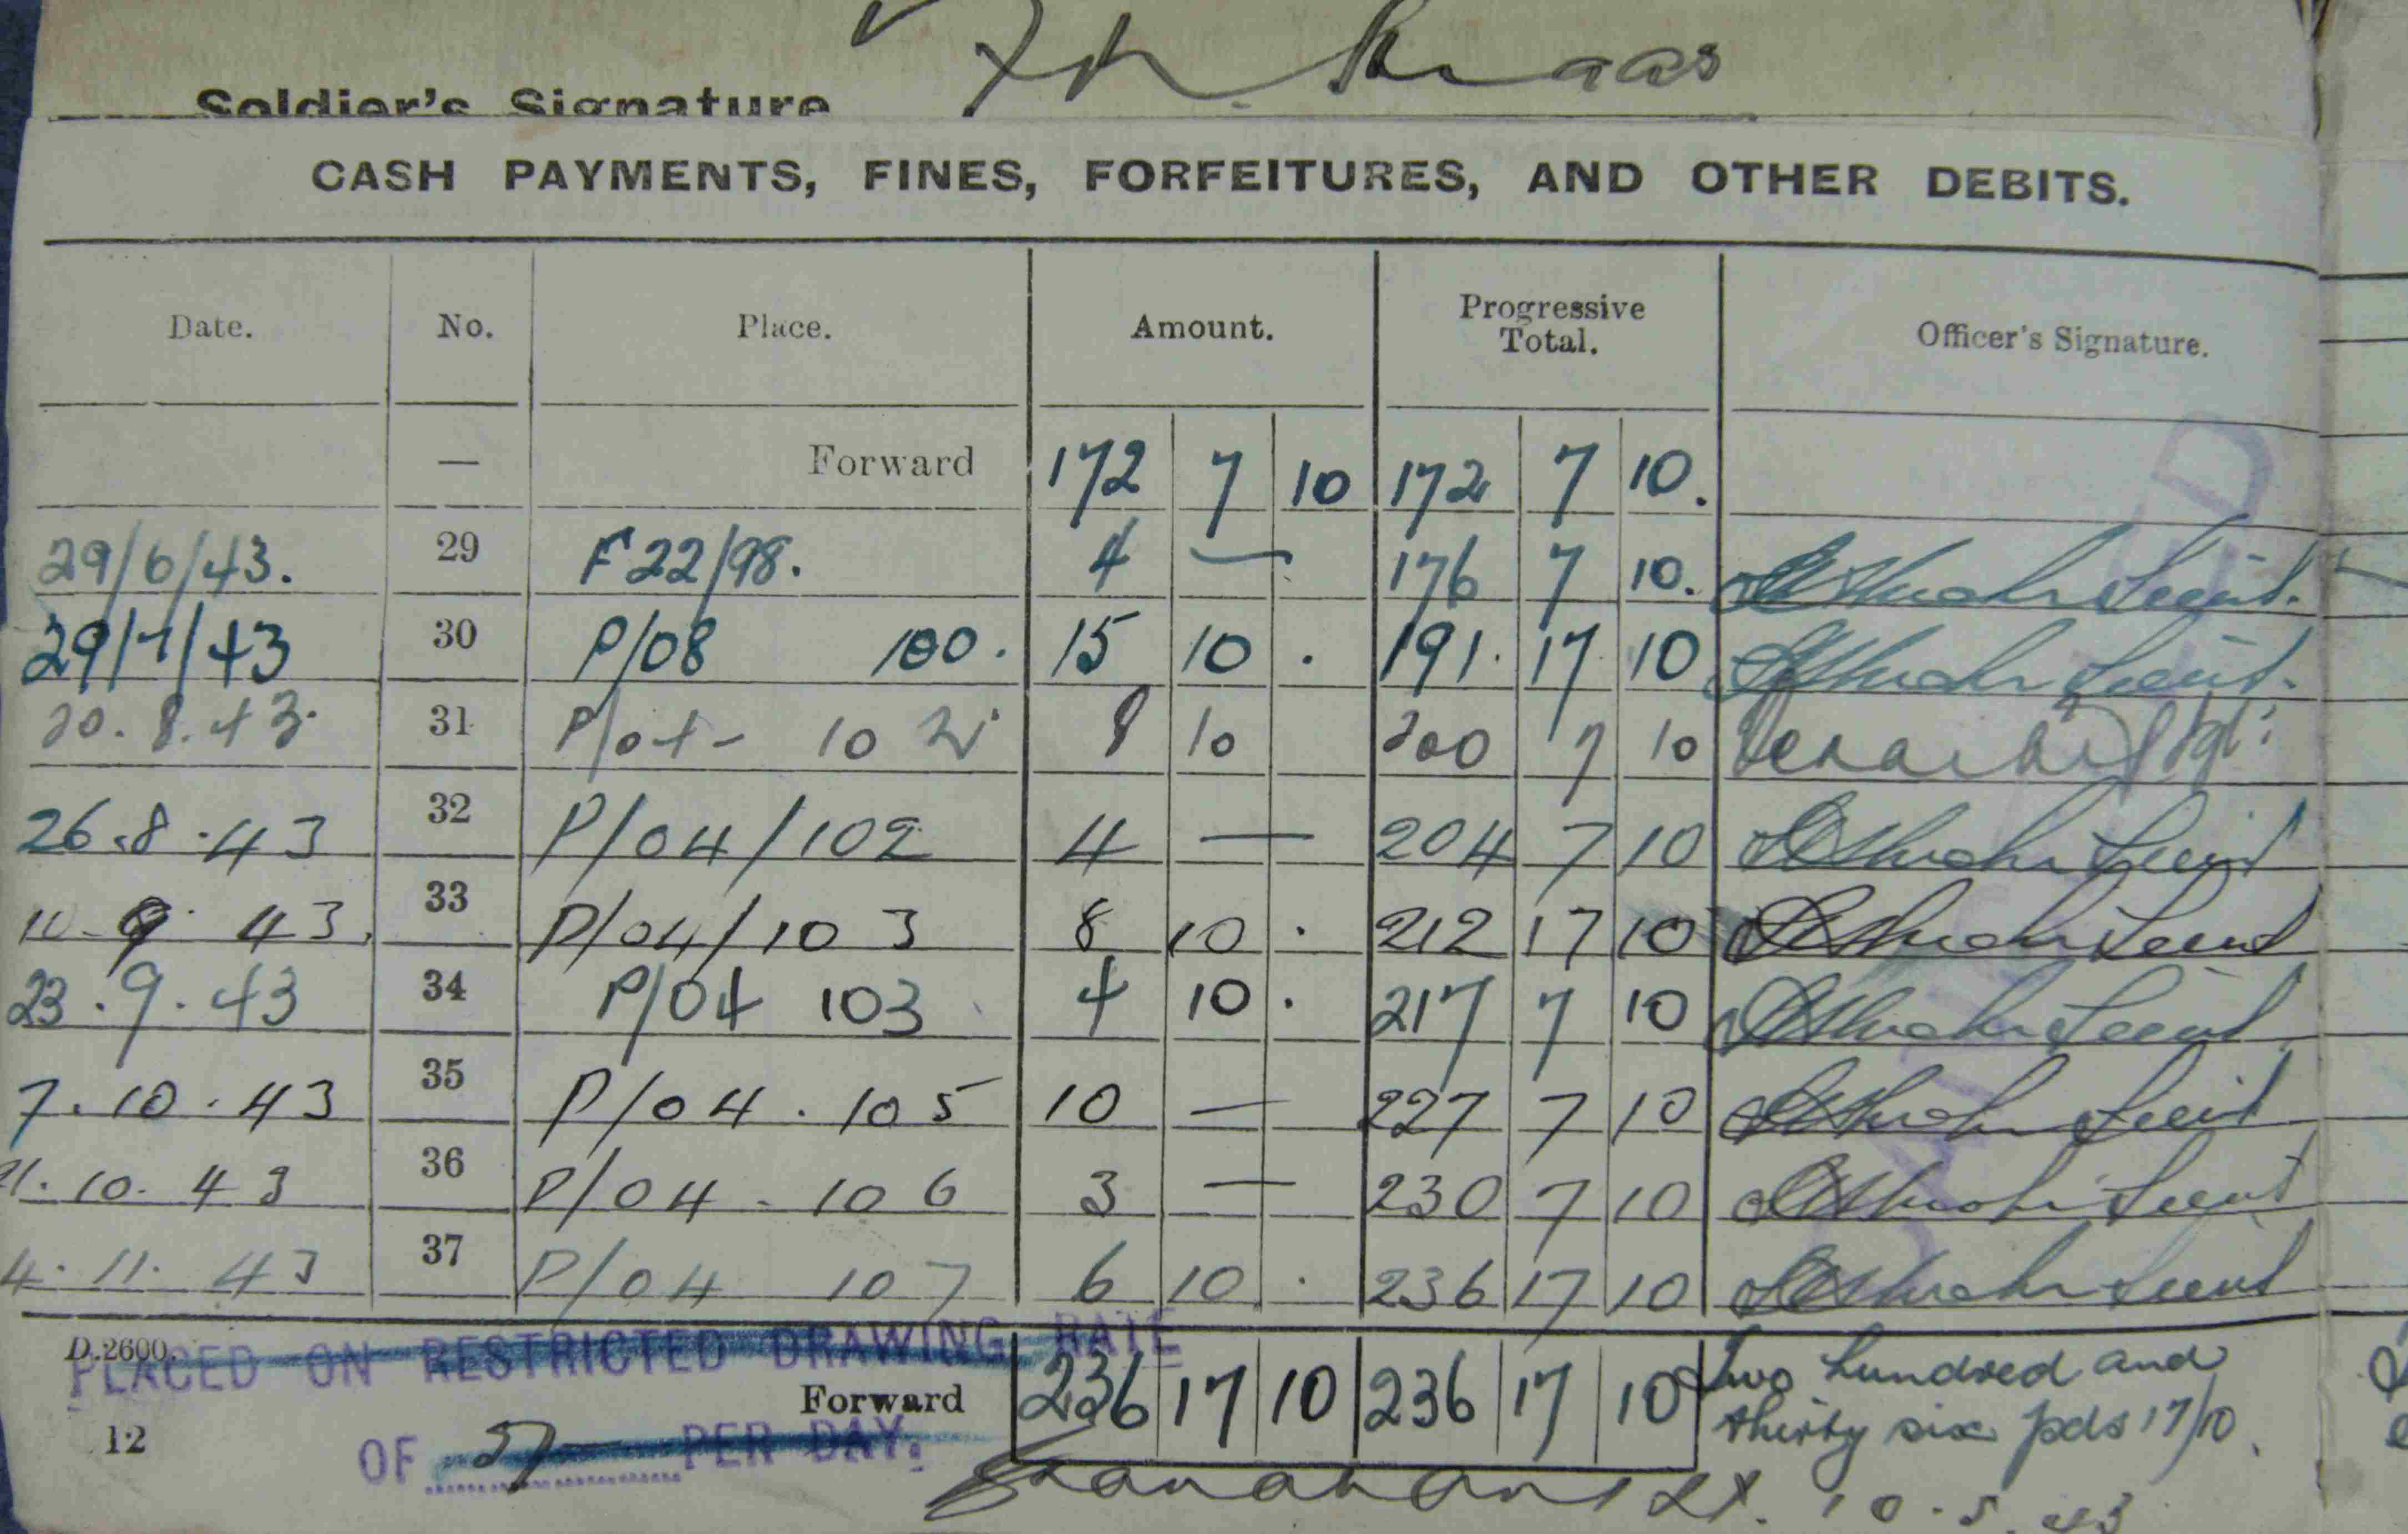 Soldier's Signature
CASH PAYMENTS, FINES, FORFEITURES, AND OTHER DEBITS.
Date. No. Place. Amount. Progressive Total. Officer's Signature.
— Forward 172 7 10 172 7 10.
29/6/43. 29 F22/98. 4 — 176 7 10. Lieut.
29/7/43 30 P/08 100. 15 10 . 191. 17 10 Lieut.
20.8.43. 31 P/04- 102 8 10 200 7 10
26.8.43 32 P/04/102 4 — 204 7 10 Lieut
10.9.43. 33 P/04/103 8 10 . 212 17 10 Lieut
23.9.43 34 P/04 103 4 10 . 217 7 10 Lieut
7.10.43 35 P/04.105 10 — 227 7 10 Lieut
21.10.43 36 P/04-106 3 — 230 7 10 Lieut
4.11.43 37 P/04 107 6 10 . 236 17 10 Lieut
D.2600.
PLACED ON RESTRICTED DRAWING RATE
Forward 236 17 10 236 17 10 Two hundred and
thirty six pds 17/10.
12
OF 5/- PER DAY.
Lt.